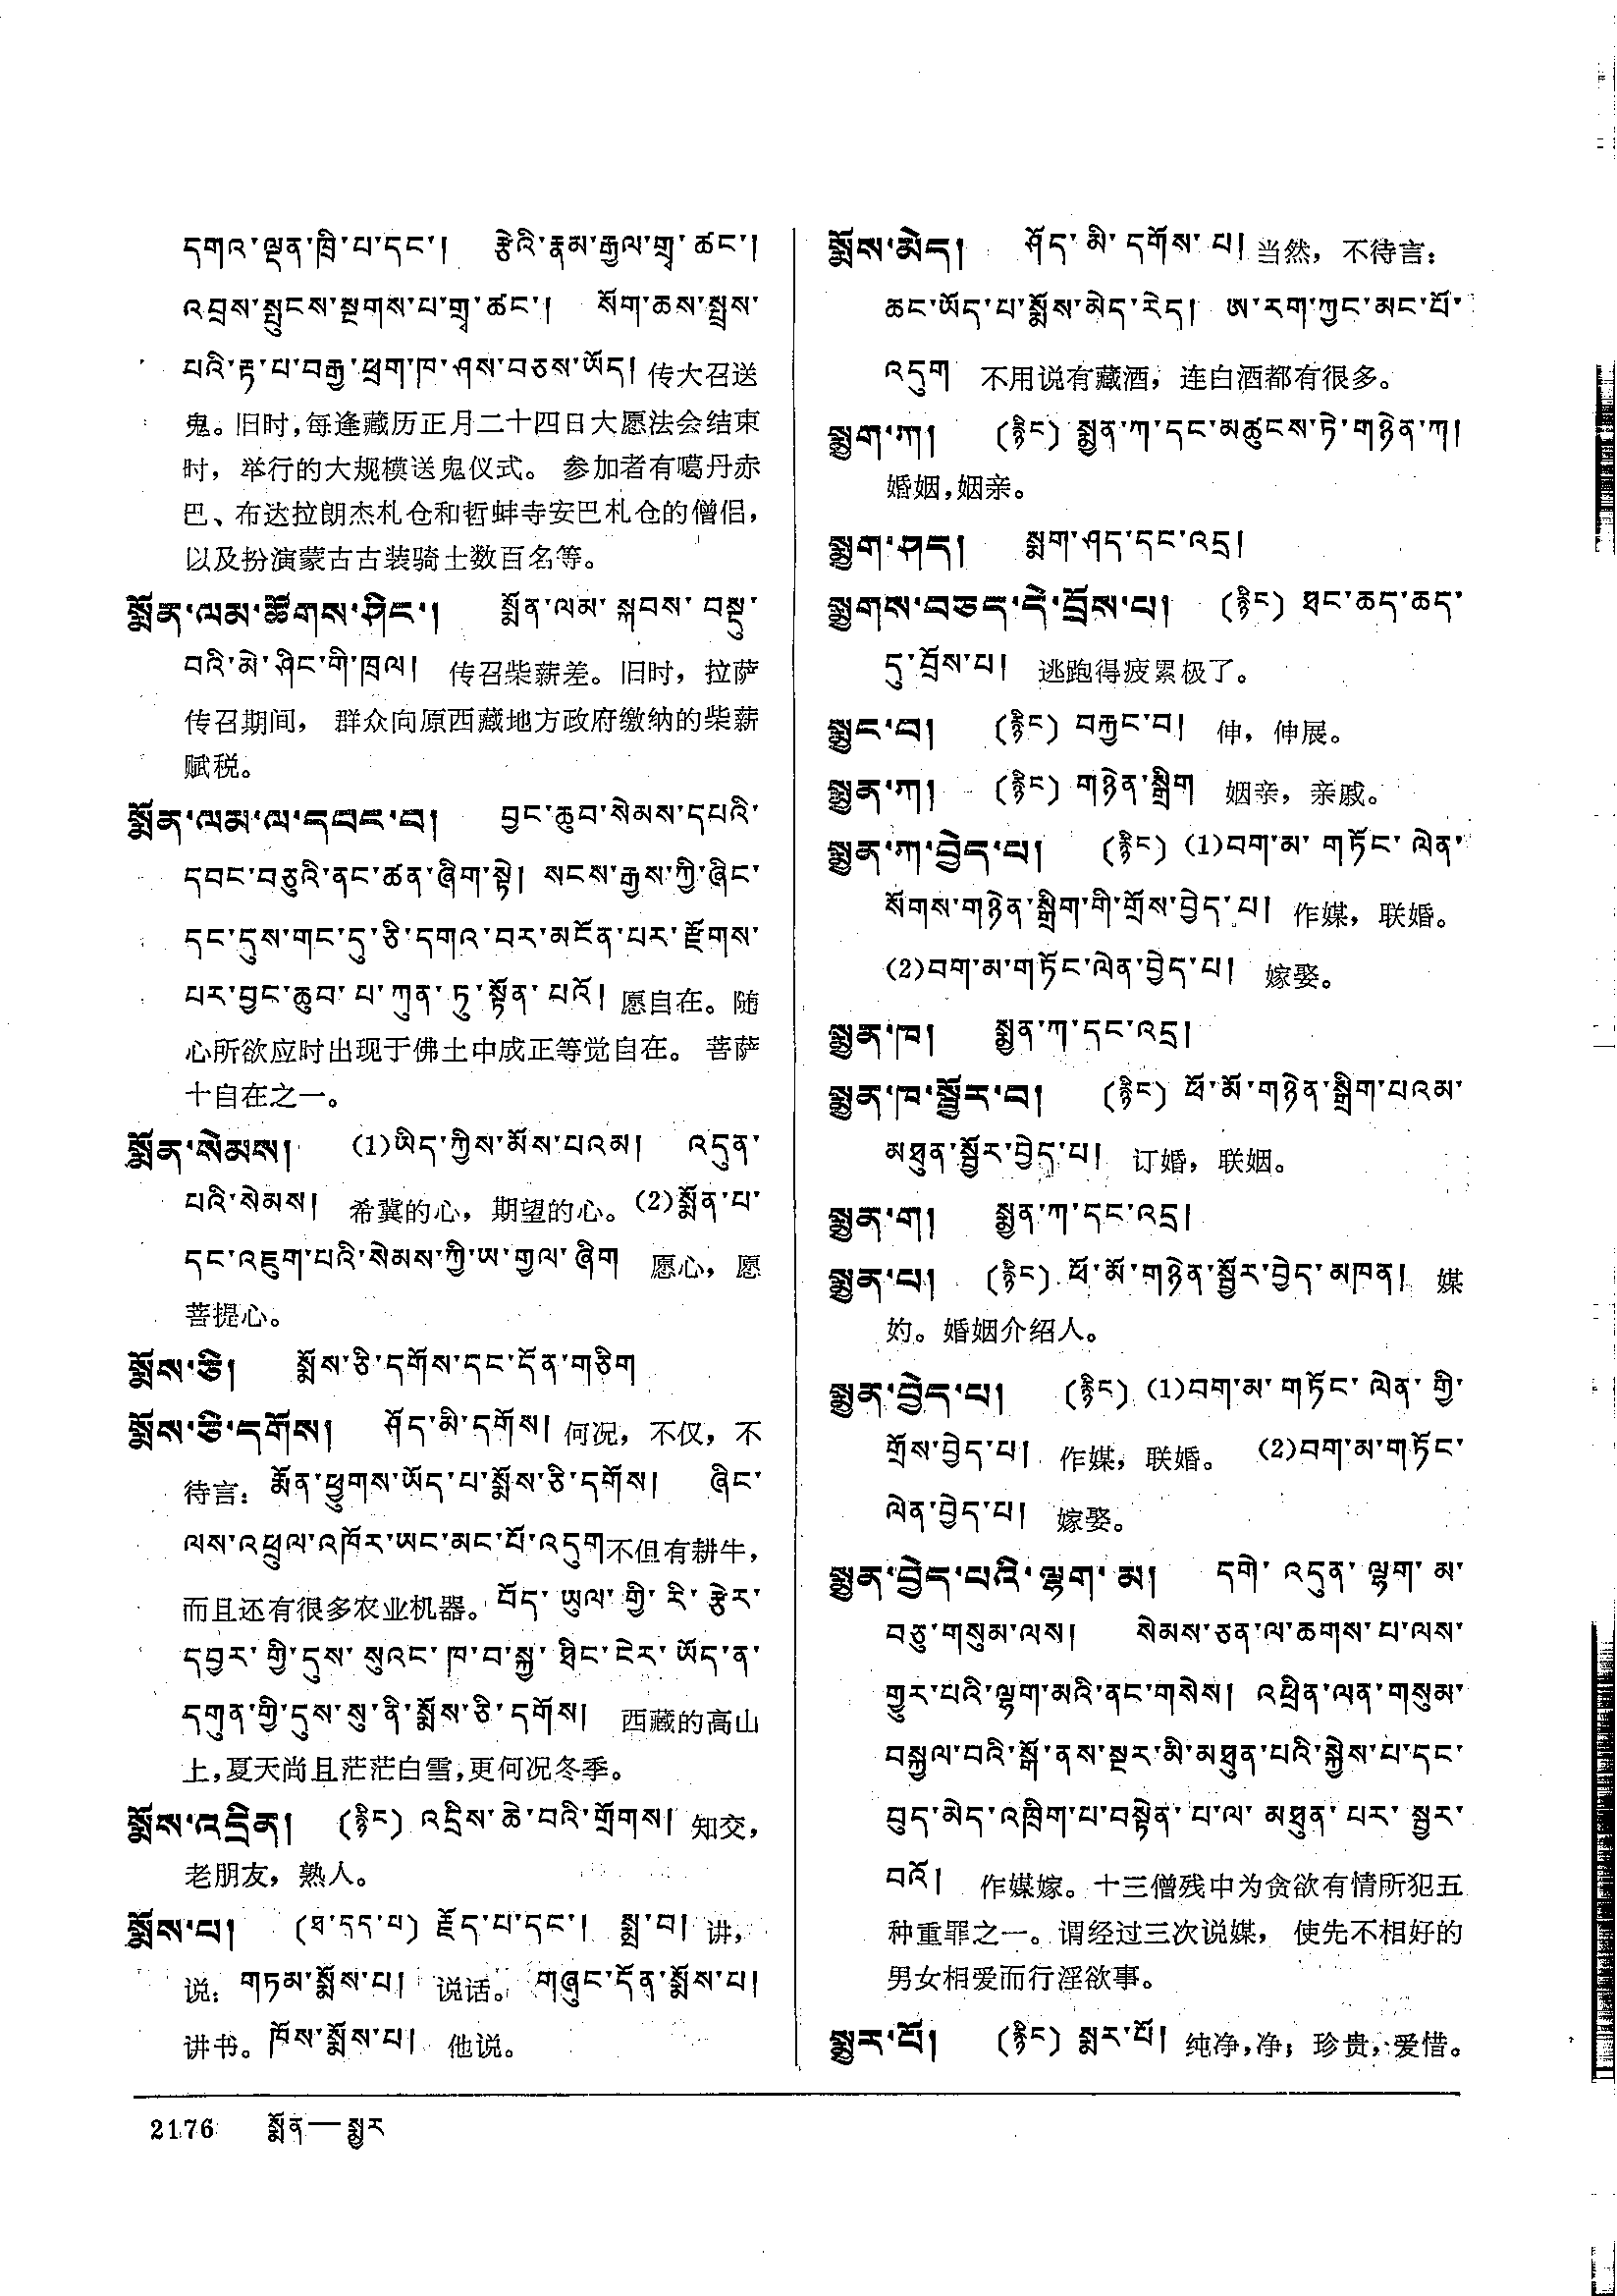 དགའ་ལྡན་ཁྲི་པ་དང་། རྩེའི་རྣམ་རྒྱལ་གྲྭ་ཚང་།
འབྲས་སྤུངས་སྔགས་པ་གྲྭ་ཚང་། སོག་ཆས་སྤྲས་
པའི་རྟ་པ་བརྒྱ་ཕྲག་ཁ་ཤས་བཅས་ཡོད། 传大召送
鬼。旧时,每逢藏历正月二十四日大愿法会结束
时，举行的大规模送鬼仪式。参加者有噶丹赤
巴、布达拉朗杰札仓和哲蚌寺安巴札仓的僧侣，
以及扮演蒙古古装骑士数百名等。
སྨོན་ལམ་ཚོགས་ཤིང་། སྨོན་ལམ་སྐབས་བསྡུ་
བའི་མེ་ཤིང་གི་ཁྲལ། 传召柴薪差。旧时，拉萨
传召期间，群众向原西藏地方政府缴纳的柴薪
赋税。
སྨོན་ལམ་ལ་དབང་བ། བྱང་ཆུབ་སེམས་དཔའི་
དབང་བཅུའི་ནང་ཚན་ཞིག་སྟེ། སངས་རྒྱས་ཀྱི་ཞིང་
དང་དུས་གང་དུ་ཅི་དགའ་བར་མངོན་པར་རྫོགས་
པར་བྱང་ཆུབ་པ་ཀུན་ཏུ་སྟོན་པའོ། 愿自在。随
心所欲应时出现于佛土中成正等觉自在。菩萨
十自在之一。
སྨོན་སེམས། (1)ཡིད་ཀྱིས་མོས་པའམ། འདུན་
པའི་སེམས། 希冀的心，期望的心。(2)སྨོན་པ་
དང་འཇུག་པའི་སེམས་ཀྱི་ཨ་གྱལ་ཞིག 愿心，愿
菩提心。
སྨོས་ཅི། སྨོས་ཅི་དགོས་དང་དོན་གཅིག
སྨོས་ཅི་དགོས། ཤོད་མི་དགོས། 何况，不仅，不
待言：རྨོན་ཕྱུགས་ཡོད་པ་སྨོས་ཅི་དགོས། ཞིང་
ལས་འཕྲུལ་འཁོར་ཡང་མང་པོ་འདུག不但有耕牛，
而且还有很多农业机器。བོད་ཡུལ་གྱི་རི་རྩེར་
དབྱར་གྱི་དུས་སུའང་ཁ་བ་སྐྱ་ཐིང་ངེར་ཡོད་ན་
དགུན་གྱི་དུས་སུ་ནི་སྨོས་ཅི་དགོས། 西藏的高山
上,夏天尚且茫茫白雪,更何况冬季。
སྨོས་འདྲིན། (རྙིང) འདྲིས་ཆེ་བའི་གྲོགས། 知交，
老朋友，熟人。
སྨོས་པ། (ཐ་དད་པ) རྗོད་པ་དང་། སྨྲ་བ། 讲，
说：གཏམ་སྨོས་པ། 说话。གཞུང་དོན་སྨོས་པ།
讲书。ཁོས་སྨོས་པ། 他说。
སྨོས་མེད། ཤོད་མི་དགོས་པ། 当然，不待言：
ཆང་ཡོད་པ་སྨོས་མེད་རེད། ཨ་རག་ཀྱང་མང་པོ་
འདུག 不用说有藏酒，连白酒都有很多。
སྨྱག་ཀ། (རྙིང) སྨྱན་ཀ་དང་མཚུངས་ཏེ་གཉེན་ཀ།
婚姻,姻亲。
སྨྱག་ཤད། སྨག་ཤད་དང་འདྲ།
སྨྱགས་བཅད་དེ་བྲོས་པ། (རྙིང) ཐང་ཆད་ཆད་
དུ་བྲོས་པ། 逃跑得疲累极了。
སྨྱང་བ། (རྙིང) བརྐྱང་བ། 伸，伸展。
སྨྱན་ཀ། (རྙིང) གཉེན་སྒྲིག 姻亲，亲戚。
སྨྱན་ཀ་བྱེད་པ། (རྙིང) (1)བག་མ་གཏོང་ལེན་
སོགས་གཉེན་སྒྲིག་གི་གྲོས་བྱེད་པ། 作媒，联婚。
(2)བག་མ་གཏོང་ལེན་བྱེད་པ། 嫁娶。
སྨྱན་ཁ། སྨྱན་ཀ་དང་འདྲ།
སྨྱན་ཁ་སྦྱོར་བ། (རྙིང) ཕོ་མོ་གཉེན་སྒྲིག་པའམ་
མཐུན་སྦྱོར་བྱེད་པ། 订婚，联姻。
སྨྱན་ག། སྨྱན་ཀ་དང་འདྲ།
སྨྱན་པ། (རྙིང) ཕོ་མོ་གཉེན་སྦྱོར་བྱེད་མཁན། 媒
妁。婚姻介绍人。
སྨྱན་བྱེད་པ། (རྙིང) (1)བག་མ་གཏོང་ལེན་གྱི་
གྲོས་བྱེད་པ། 作媒，联婚。 (2)བག་མ་གཏོང་
ལེན་བྱེད་པ། 嫁娶。
སྨྱན་བྱེད་པའི་ལྷག་མ། དགེ་འདུན་ལྷག་མ་
བཅུ་གསུམ་ལས། སེམས་ཅན་ལ་ཆགས་པ་ལས་
གྱུར་པའི་ལྷག་མའི་ནང་གསེས། འཕྲིན་ལན་གསུམ་
བསྐྱལ་བའི་སྒོ་ནས་སྔར་མི་མཐུན་པའི་སྐྱེས་པ་དང་
བུད་མེད་འཁྲིག་པ་བསྟེན་པ་ལ་མཐུན་པར་སྦྱར་
བའོ། 作媒嫁。十三僧残中为贪欲有情所犯五
种重罪之一。谓经过三次说媒，使先不相好的
男女相爱而行淫欲事。
སྨྱར་པོ། (རྙིང) སྨར་པོ། 纯净,净；珍贵，爱惜。
2176 སྨོན—སྨྱར